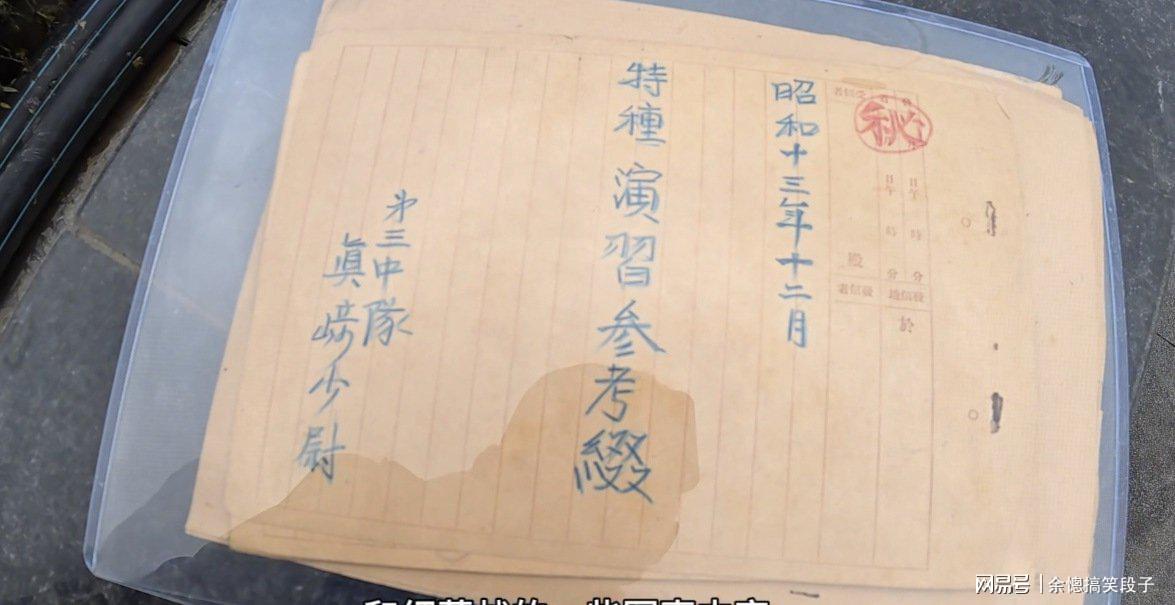 秘
受信者
日午 時 分
日午 時 分
殿
發信者
發信地
於
昭和十三年十二月
特種演習参考綴
第三中隊
眞﨑少尉
网易号 | 余憁搞笑段子